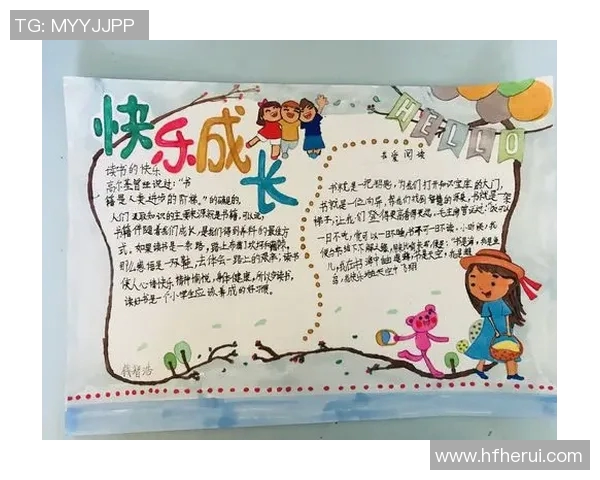 TG: MYYJJPP
快乐成长
HELLO
读书的快乐
高尔基曾经说过:“书
籍是人类进步的阶梯。”的确是的,
人们获取知识的主要来源就是书籍,可以说,
书籍伴随着我们成长,是我们得到养料的最佳方
式。如果读书是一条路,路上布满了坎坷和荆棘,
那么感悟是一双鞋,去体会一路上的艰辛,读书
使人心情快乐,精神愉悦,身体健康,所以多读书,
读好书是一个小学生应该养成的好习惯。
钱智浩
书爱阅读
书就是一把钥匙,为我们打开知识宝库的大门,
书就是一位向导,带我们找到智慧的源泉,书就是一架
梯子,让我们登得更高看得更远,毛主席曾说过:“饭可以
一日不吃,觉可以一日不睡,书不可一日不读
儿,我在书海中
鸟,我快乐地在天空中飞翔
www.hfherui.com